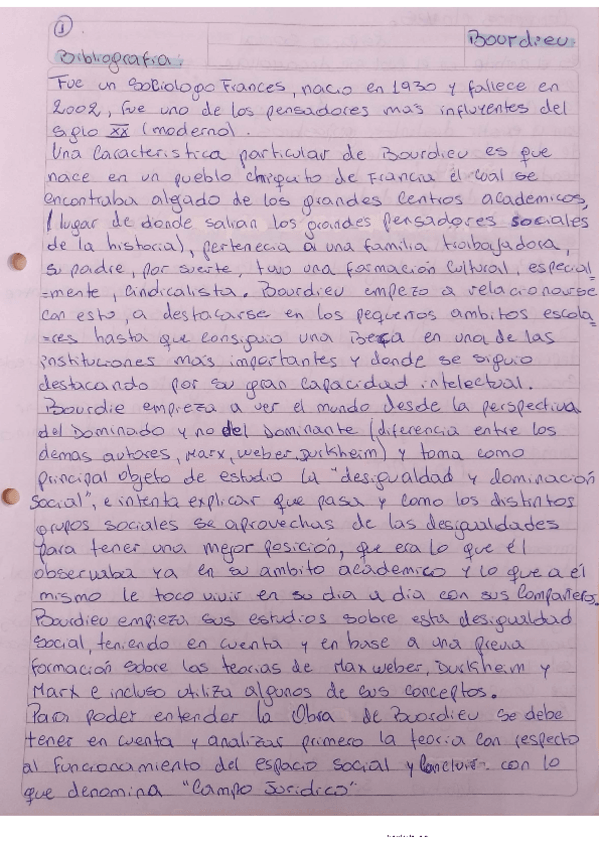 1
Bourdieu.
Bibliografia:
Fue un Sociologo Frances, nacio en 1930 y fallece en
2002, fue uno de los pensadores mas influyentes del
siglo XX (moderno).
Una Caracteristica particular de Bourdieu es que
nace en un pueblo chiquito de Francia el cual se
encontraba alejado de los grandes centros academicos,
(lugar de donde salian los grandes pensadores sociales
de la historia), pertenecia a una familia trabajadora,
su padre, por suerte, tuvo una formación cultural, especial
=mente, cindicalista. Bourdieu empezo a relacionarse
con esto, a destacarse en los pequeños ambitos escola=
=res hasta que consiguio una Beca en una de las
instituciones mas importantes y donde se siguio
destacando por su gran capacidad intelectual.
Bourdie empieza a ver el mundo desde la perspectiva
del Dominado y no del Dominante (diferencia entre los
demas autores, Marx, weber, Durkheim) y toma como
principal objeto de estudio la "desigualdad y dominación
Social", e intenta explicar que pasa y como los distintos
grupos sociales se aprovechas de las desigualdades
para tener una mejor posición, que era lo que él
observaba ya en su ambito academico y lo que a él
mismo le toco vivir en su dia a dia con sus Compañeros.
Bourdieu empieza sus estudios sobre esta desigualdad
Social, teniendo en cuenta y en base a una previa
formación sobre las teorias de Max weber, Durkheim y
Marx e incluso utiliza algunos de sus conceptos.
Para poder entender la Obra de Buordieu se debe
tener en cuenta y analizar primero la teoria con respecto
al funcionamiento del espacio social y Concluir con lo
que denomina "Campo Juridico"